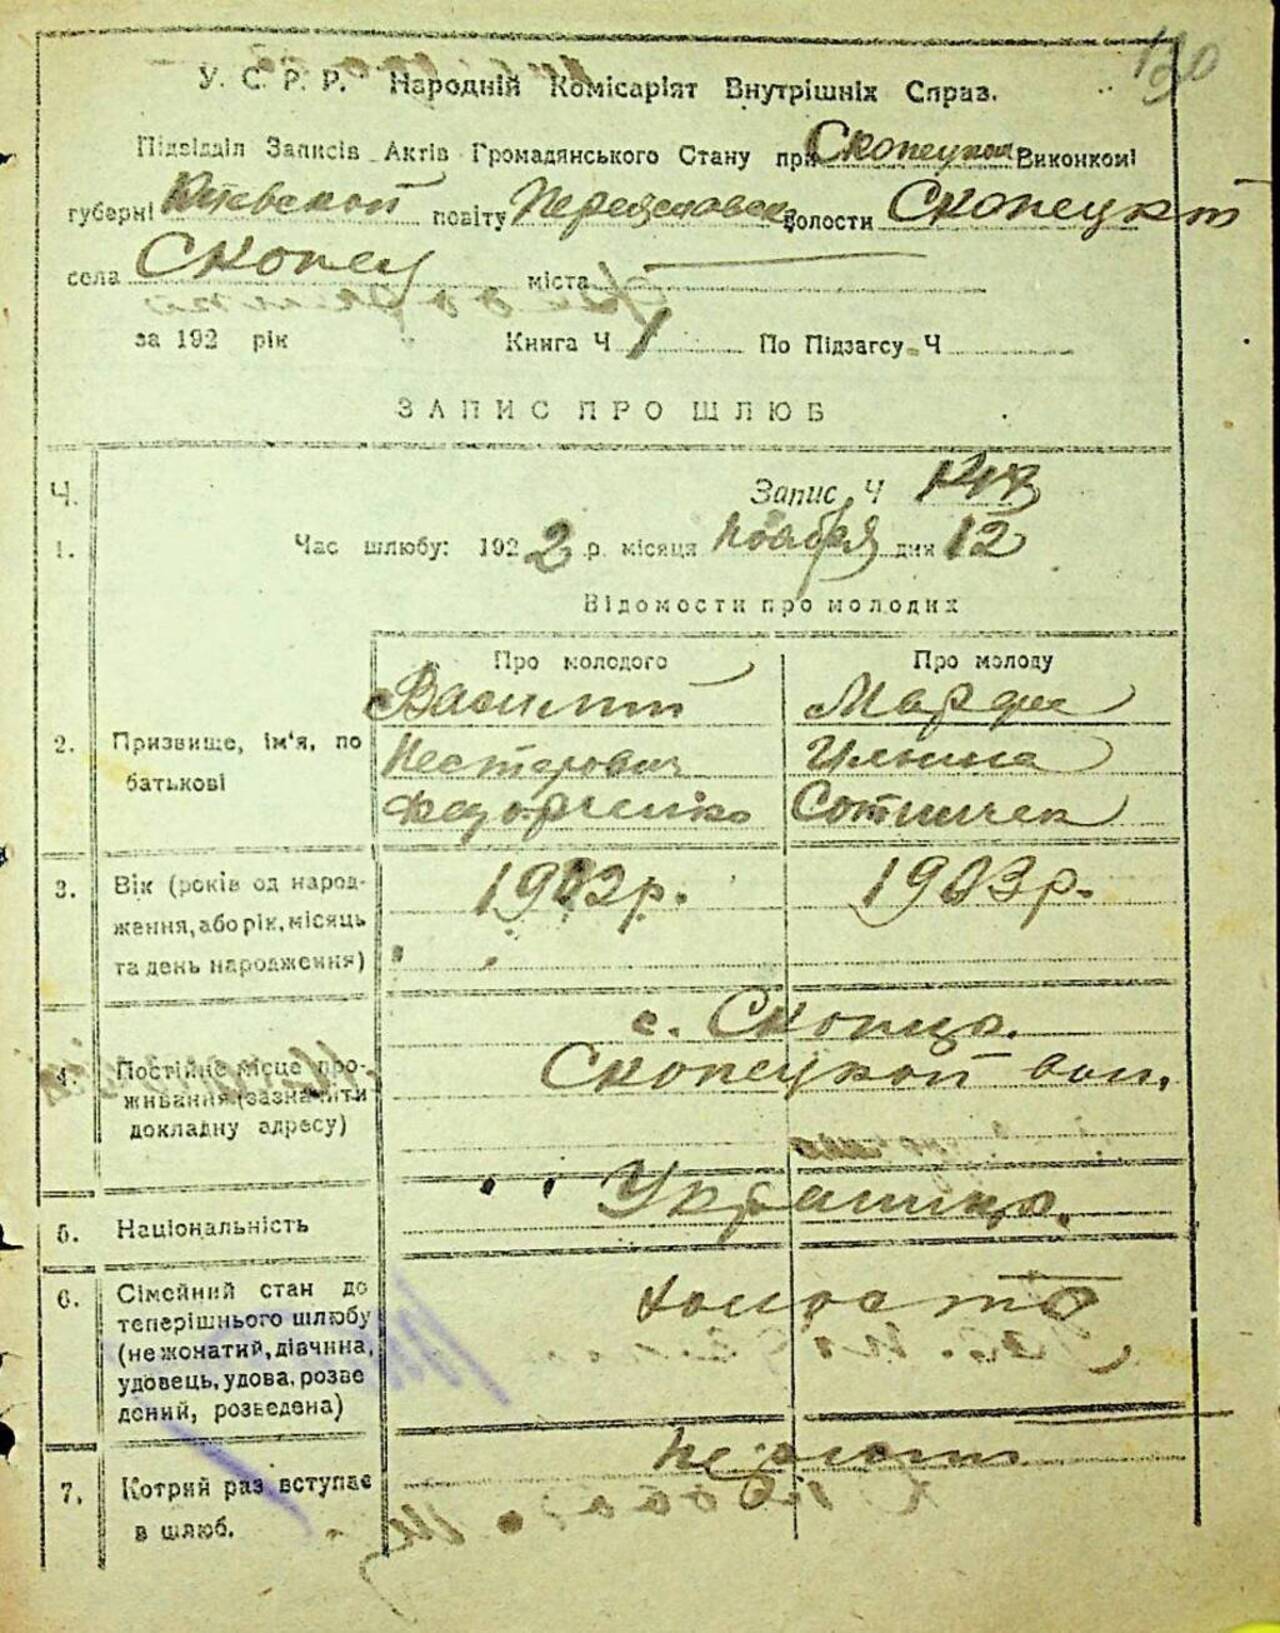 120
У. С. Р. Р. Народній Комісаріят Внутрішніх Справ.
Підвідділ Записів Актів Громадянського Стану при Скопецком Виконкомі
губерні Киевской повіту Переяславск волости Скопецкой
села Скопец міста
за 192 рік Книга Ч 1 По Підзагсу Ч
ЗАПИС ПРО ШЛЮБ
Ч. Запис Ч
1. Час шлюбу: 1922 р. місяця Ноября дня 12
Відомости про молодих
Про молодого Про молоду
Василий Марфа
2. Призвище, ім'я, по Нестерович Ильина
батькові Федорченко Сотничек
3. Вік (років од народ- 1902 р. 1903 р.
ження, або рік, місяць
та день народження)
с. Скопца.
4. Постійне місце про- Скопецкой вол.
живання (зазначити
докладну адресу)
5. Національність Украинца.
6. Сімейний стан до холосто
теперішнього шлюбу
(не жонатий, дівчина,
удовець, удова, розве
дений, розведена)
7. Котрий раз вступає
в шлюб.